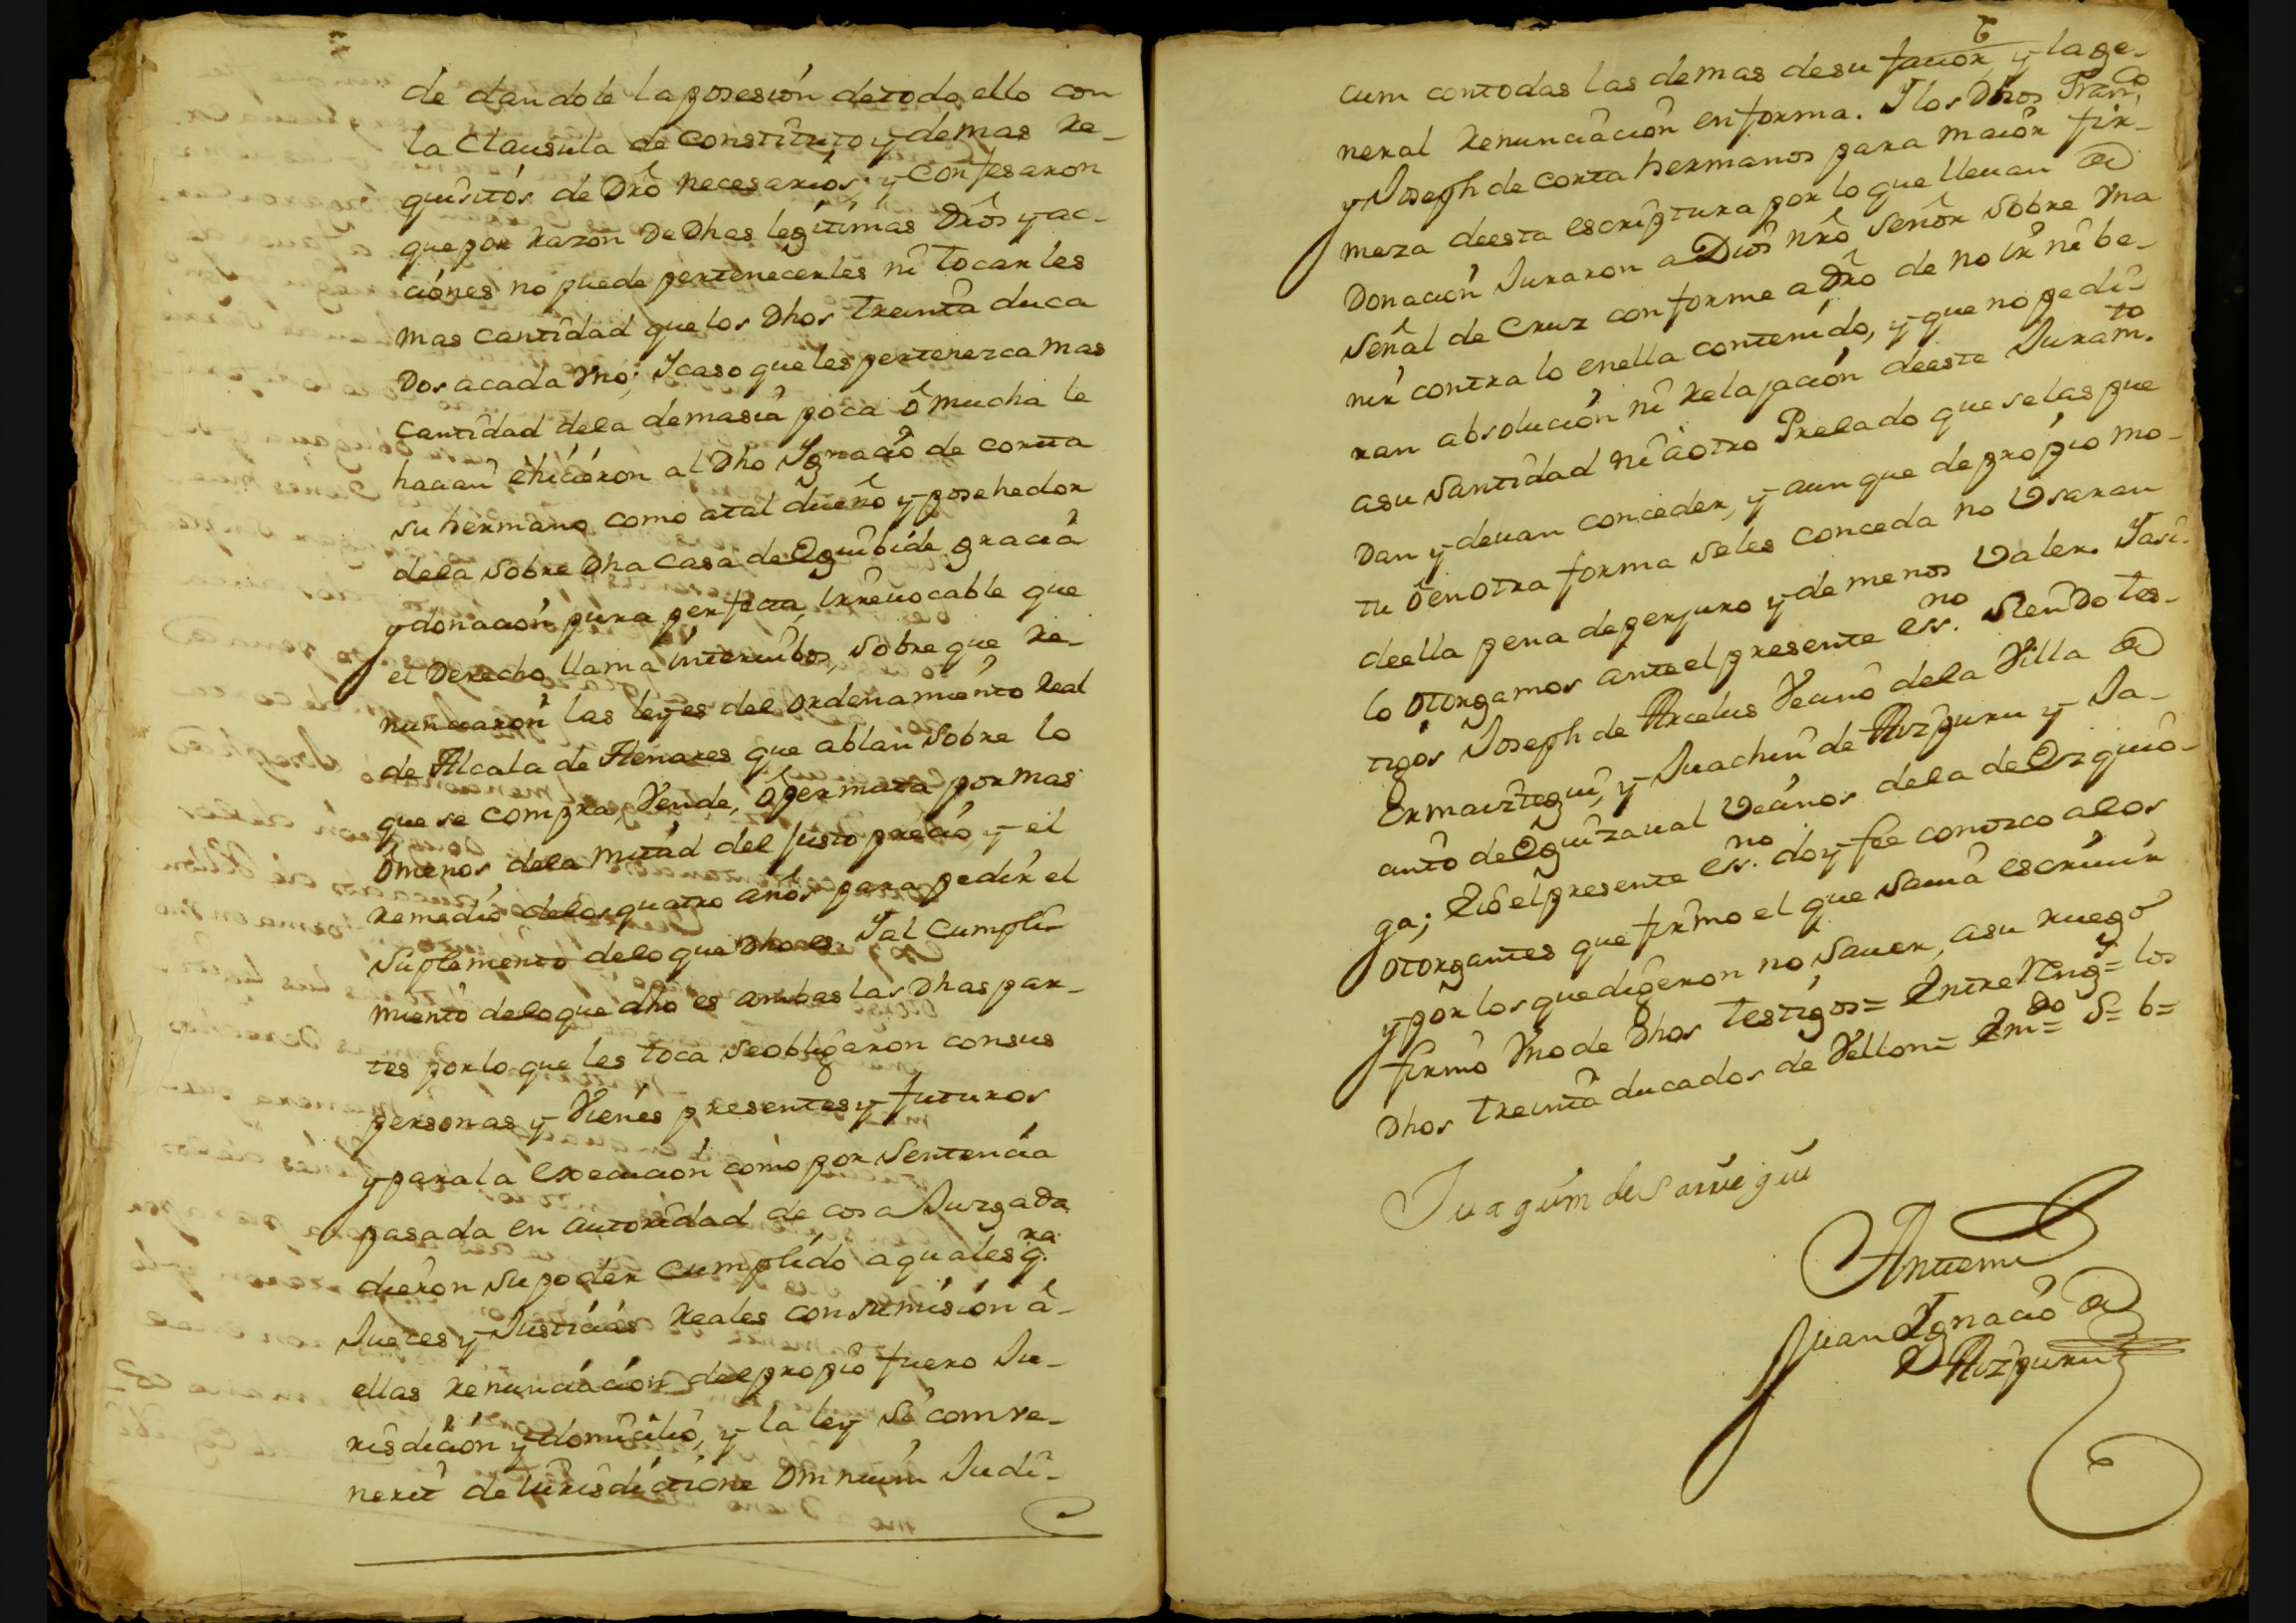 de dandole la posesión de todo ello con
la Clausula de constituto y demas re-
quisitos de Dro necesarios; y confesaron
que por razon de Dhas legitimas Dros y ac-
ciones no puede pertenecerles ni tocarles
mas cantidad que los Dhos treinta duca
dos a cada Vno; Y caso que les pertenezca mas
cantidad de la demasia poca ô mucha le
hacian e hicieron al Dho Ignacio de corta
su hermano como a tal dueño y posehedor
de la sobre Dha Casa de Eguibide gracia
y donacion pura perfecta, irrevocable que
el Derecho llama intervibos, sobre que re-
nunciaron las leyes del ordenamiento Real
de Alcala de Henares que ablan sobre lo
que se compra, Vende, ô permuta por mas
ô menos de la mitad del justo precio, y el
remedio de los quatro años para pedir el
suplemento de lo que Dho es. Y al cumpli-
miento de lo que dho es ambas las Dhas par-
tes por lo que les toca se obligaron con sus
personas y Vienes presentes y futuros
y para la execucion como por sentencia
pasada en autoridad de cosa Juzgada
dieron su poder cumplido a qualesq.ra
Jueces y Justicias Reales con sumisión â-
ellas renunciación del propio fuero Ju-
risdición y domicilio, y la ley si comve-
nerit de iurisdictione omnium Judi-
6
cum con todas las demas de su favor y la ge-
neral renunciación en forma. Y los Dhos Fran.co
y Joseph de corta hermanos para maior fir-
meza de esta escriptura por lo que llevan de
Donación Juraron a Dios nro señor sobre Vna
señal de Cruz conforme a Dro de no ir ni be-
nir contra lo en ella contenido, y que no pedi-
ran absolución ni relajación de este Juram.to
a su santidad ni a otro Prelado que se las pue
dan y devan conceder, y aunque de propio mo-
tu ô en otra forma se les conceda no Vsaran
de ella pena de perjuro y de menos Valer. Y asi
lo otorgamos ante el presente ess.no siendo tes-
tigos Joseph de Arcelus Vecino de la Villa de
Ormaiztegui, y Juachin de Aizpuru y Ja-
cinto de Eguizaual Vecinos de la de Ezquio-
ga; E io el presente ess.no doy fee conozco a los
otorgantes que firmo el que savia escriuir
y por los que digeron no saver, a su ruego
firmo Vno de Dhos testigos= Entre Reng.s= los
Dhos treinta ducados de Vellon= Em.do= S= b=
Juaquim de
Antemi
Juan Ignacio de
Aizpuru